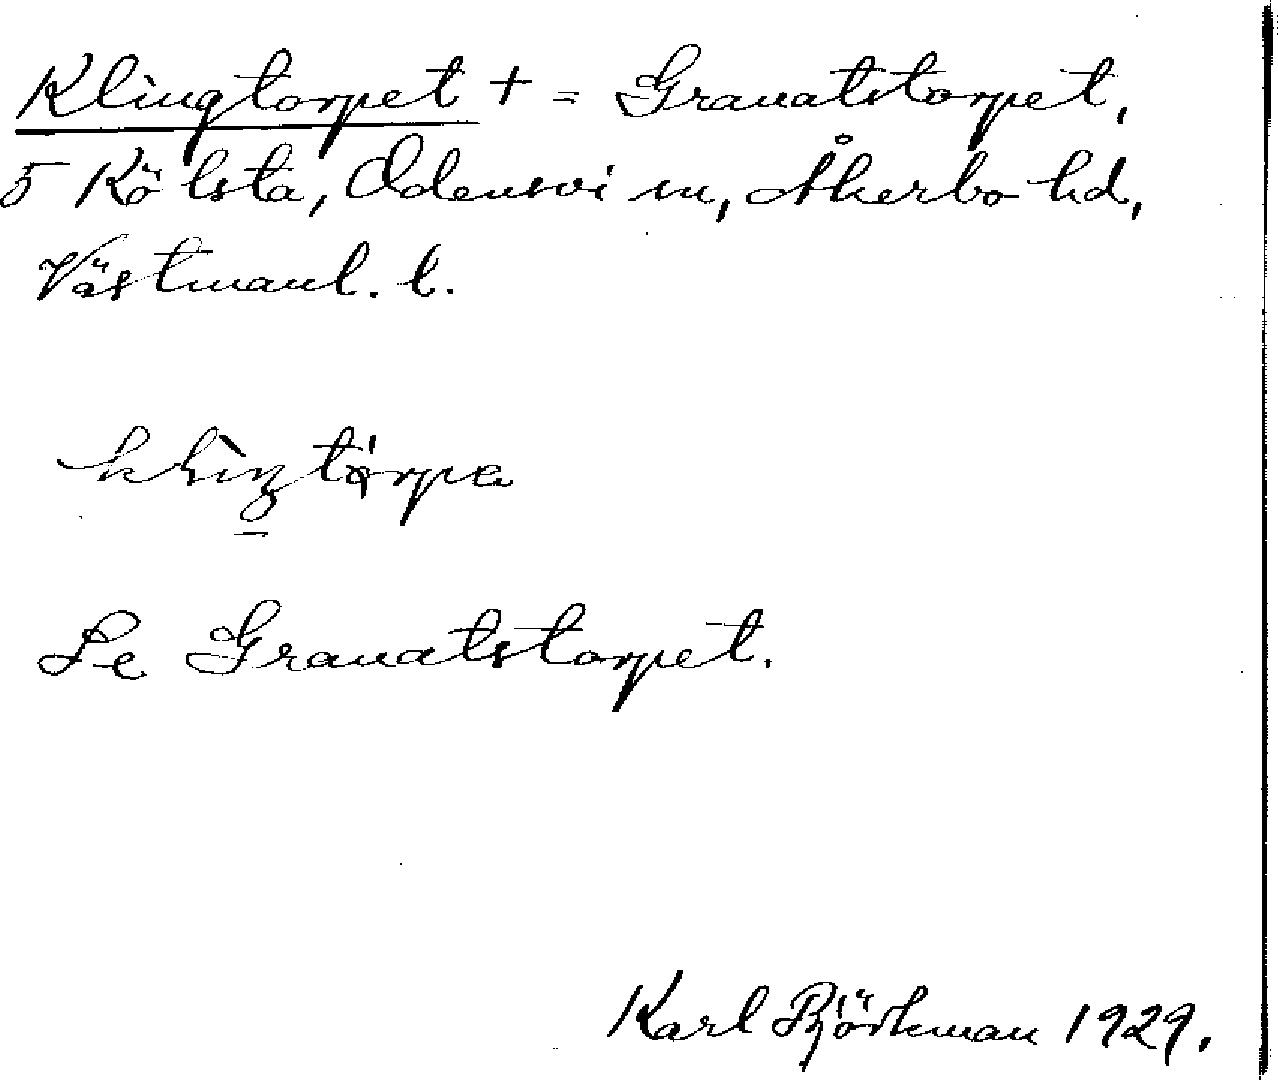 Klingtorpet + = Granatstorpet,
5 Kölsta, Odensvi sn, Åkerbo hd,
Västmanl. l.
Se Granatstorpet.
Karl Björkman 1929.